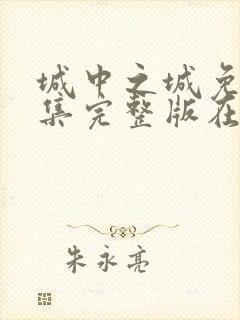 城中之城免
集完整版在
朱永亮